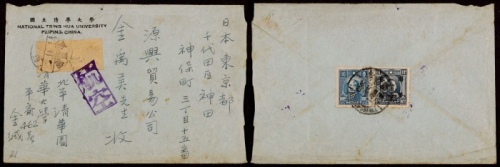 國立清華大學
NATIONAL TSING HUA UNIVERSITY
PEIPING, CHINA.
日本東京都
千代田區神田
神保町三丁目十五番
源興貿易公司
金禹昊先生 收
航空
北平清華園
清華大學
平齋
金